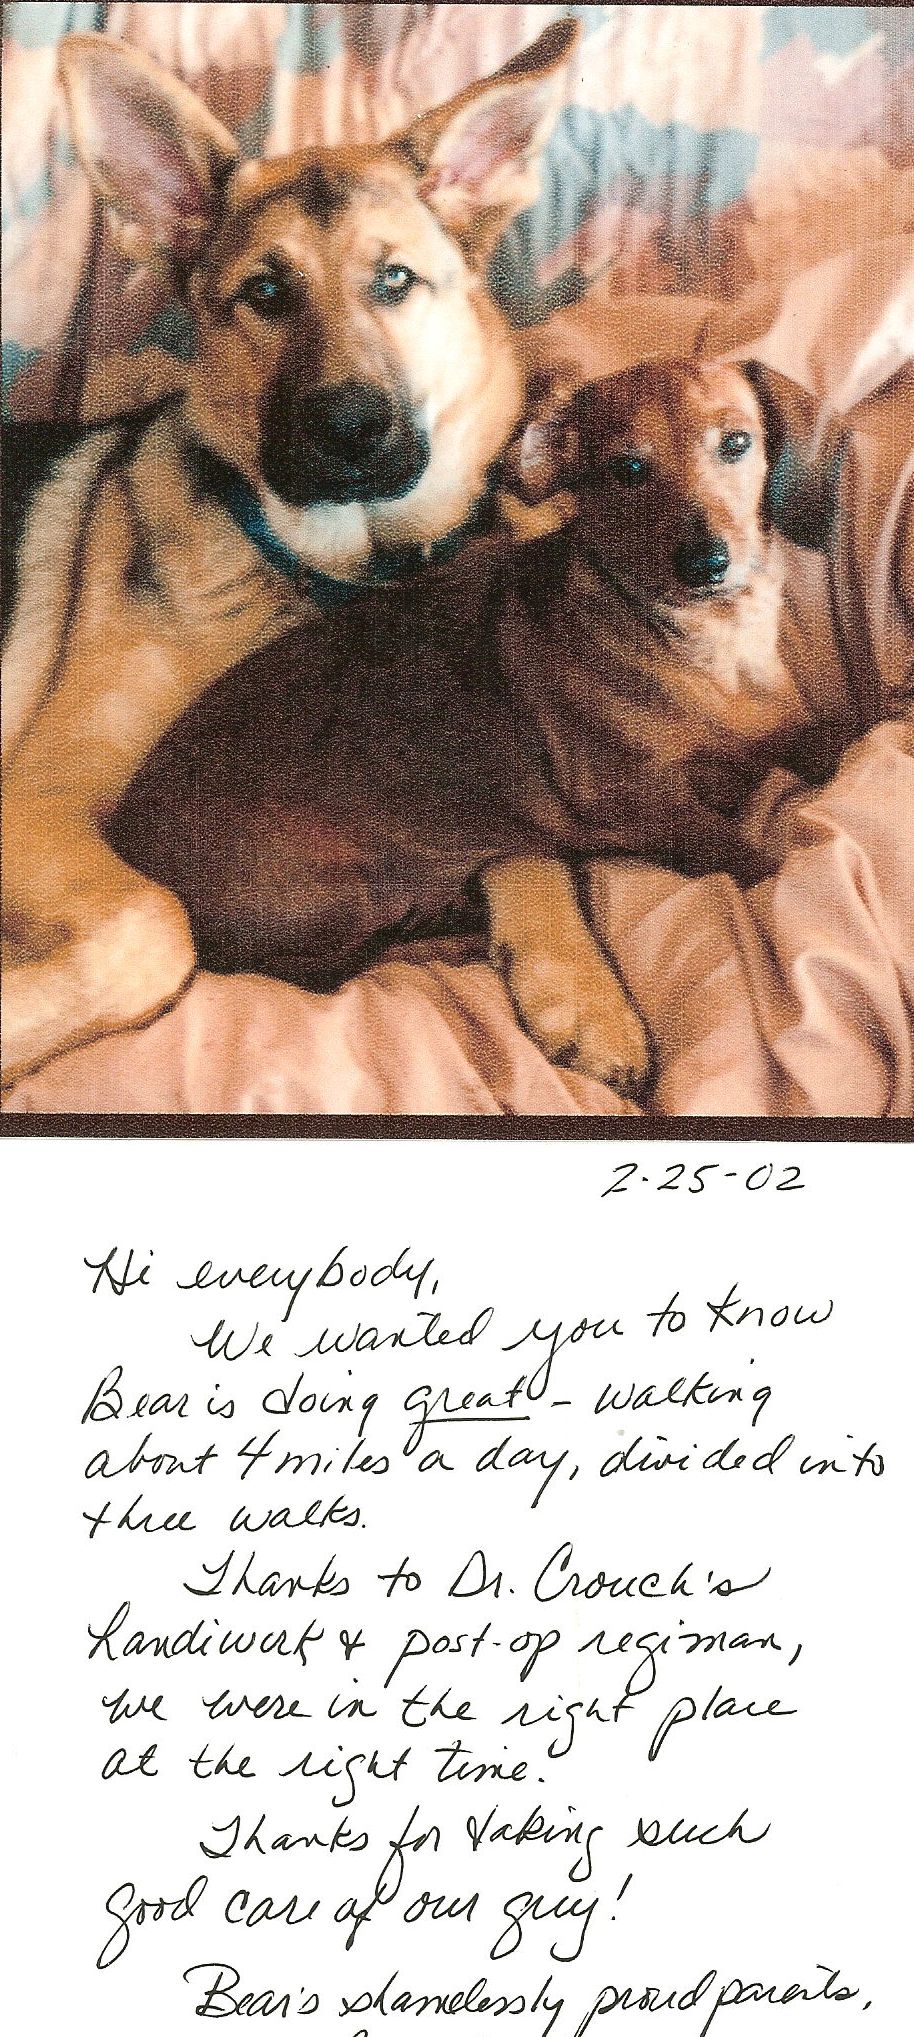 2-25-02
Hi everybody,
We wanted you to know
Bear is doing great - walking
about 4 miles a day, divided into
three walks.
Thanks to Dr. Crouch's
handiwork & post-op regiman,
we were in the right place
at the right time.
Thanks for taking such
good care of our guy!
Bear's shamelessly proud parents,